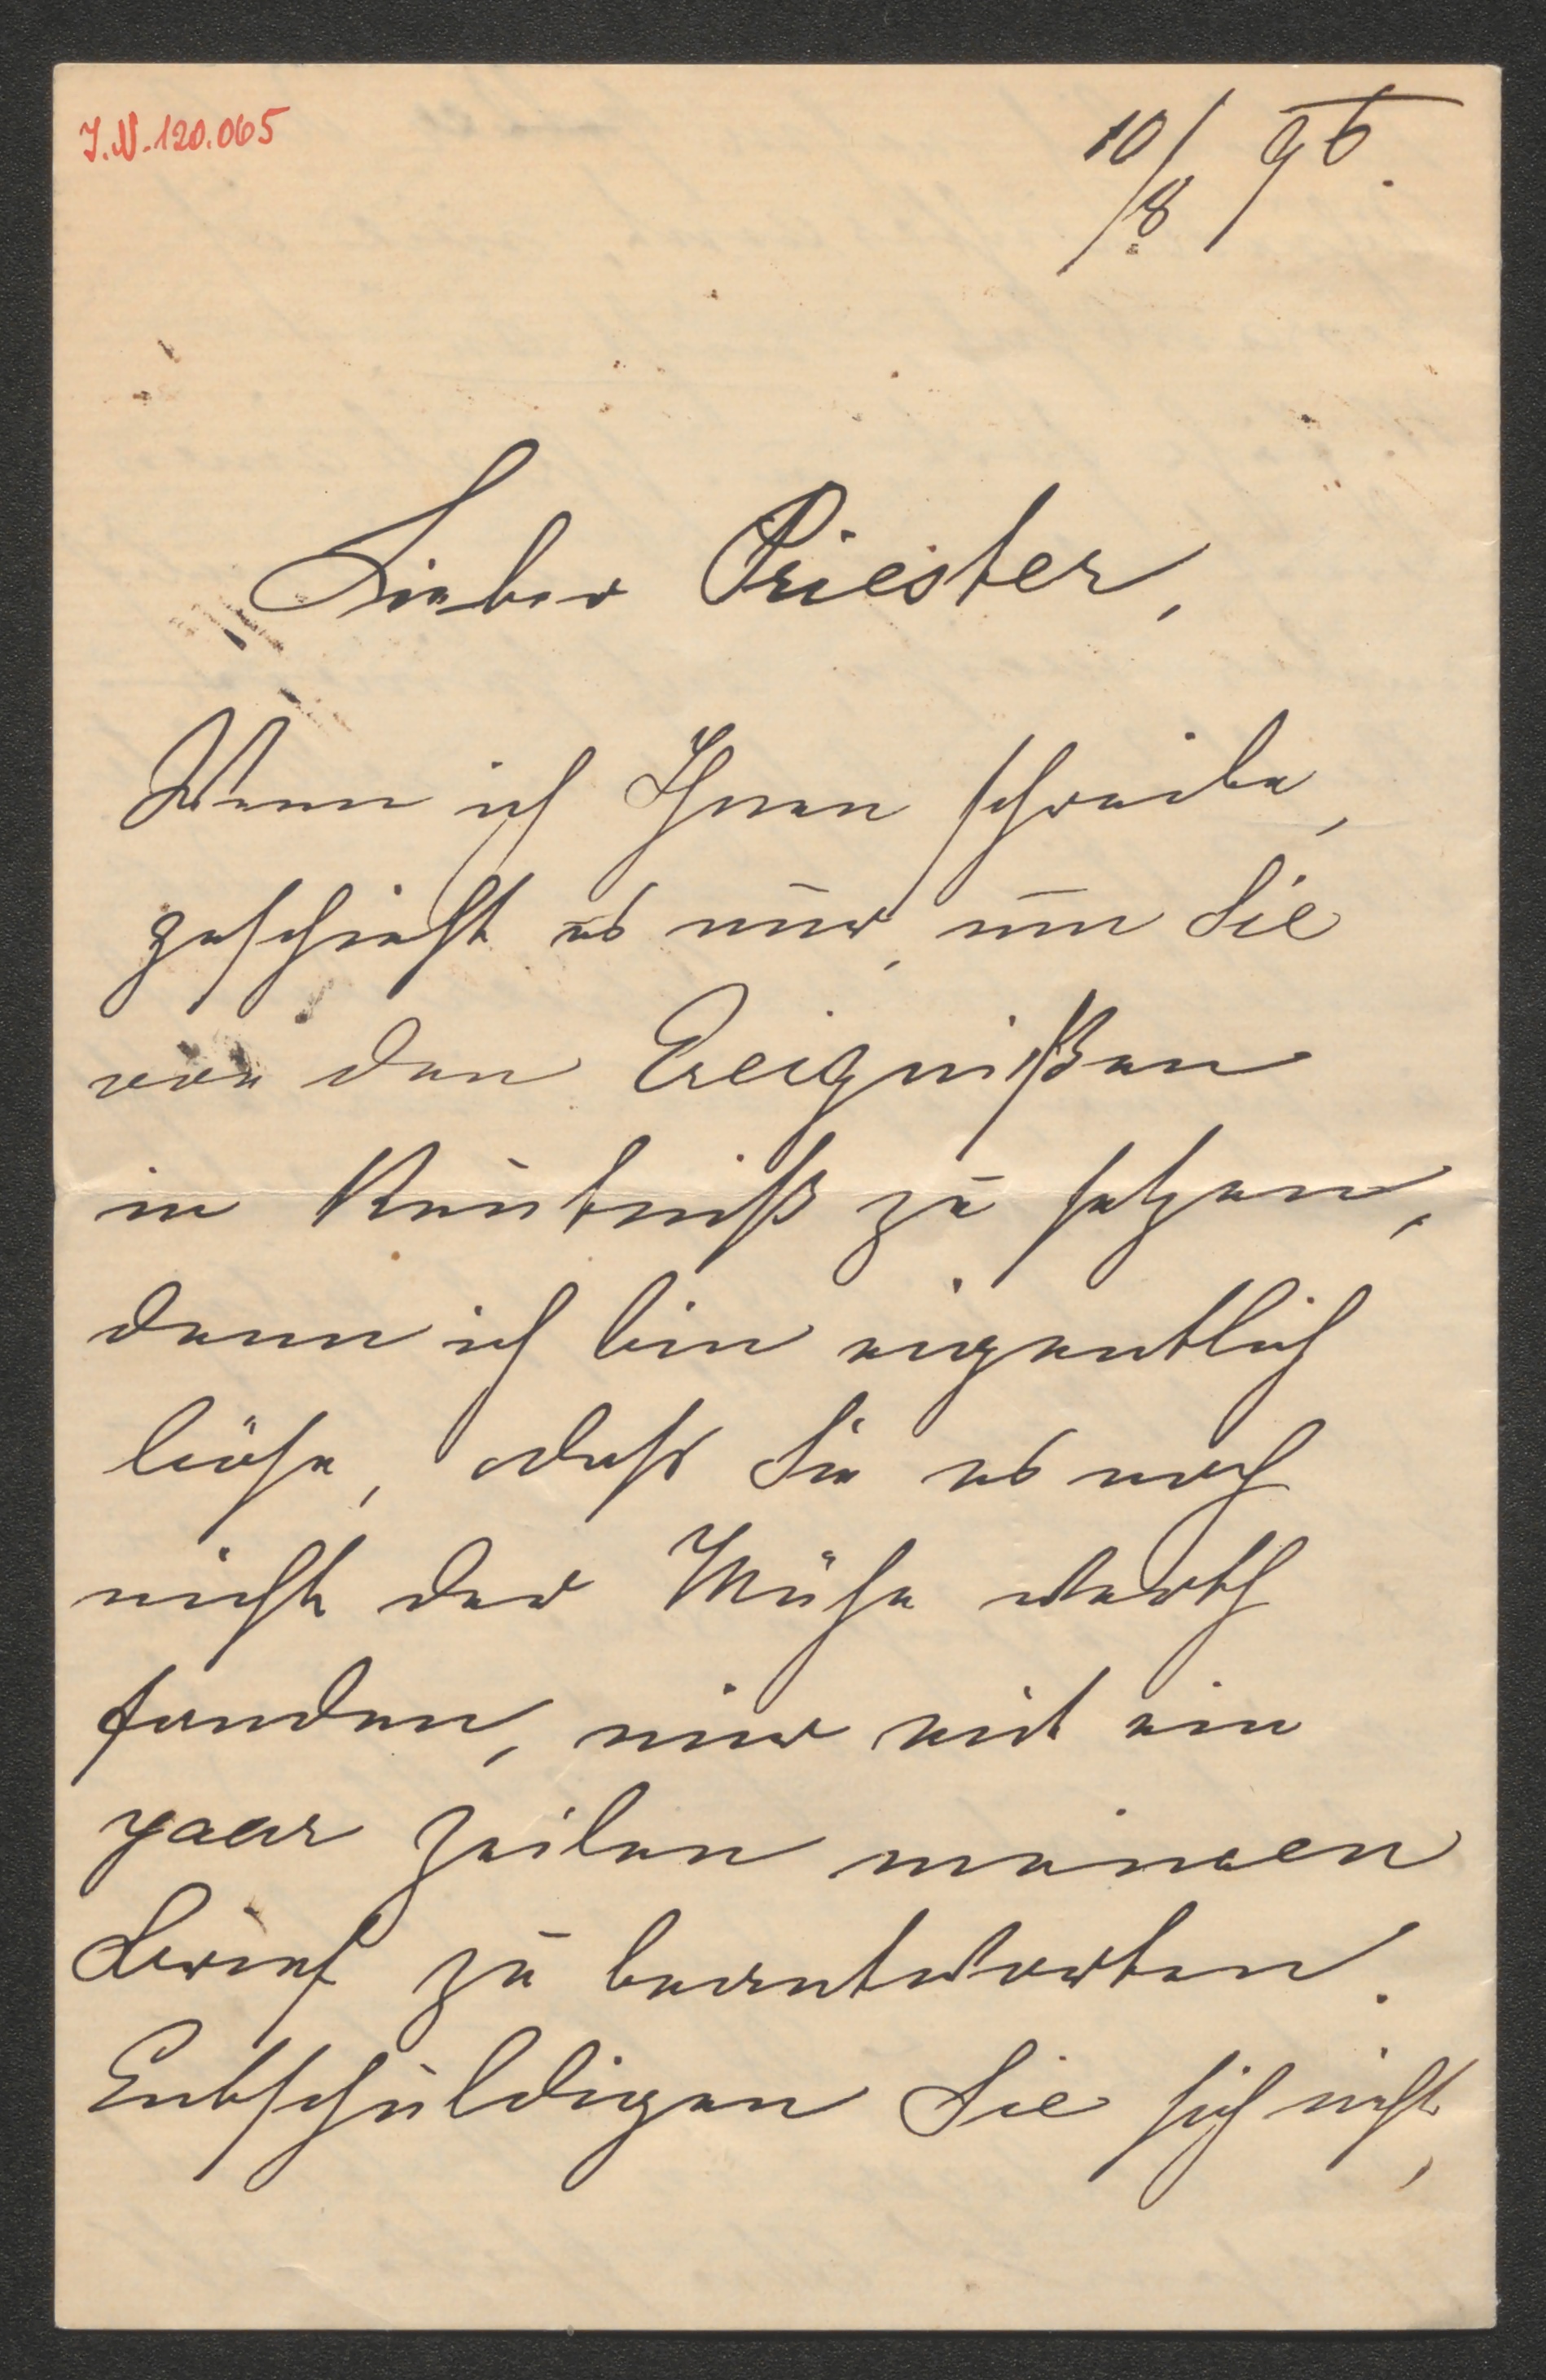 I.N. 120.065
10/8 96.
Lieber Priester,
Wenn ich Ihnen schreibe,
geschieht es nur, um Sie
von den Ereignißen
in Kentniß zu setzen,
denn ich bin eigentlich
böse, dass Sie es noch
nicht der Mühe werth
fanden, mir mit ein
paar Zeilen meinen
Brief zu beantworten.
Entschuldigen Sie sich nicht,